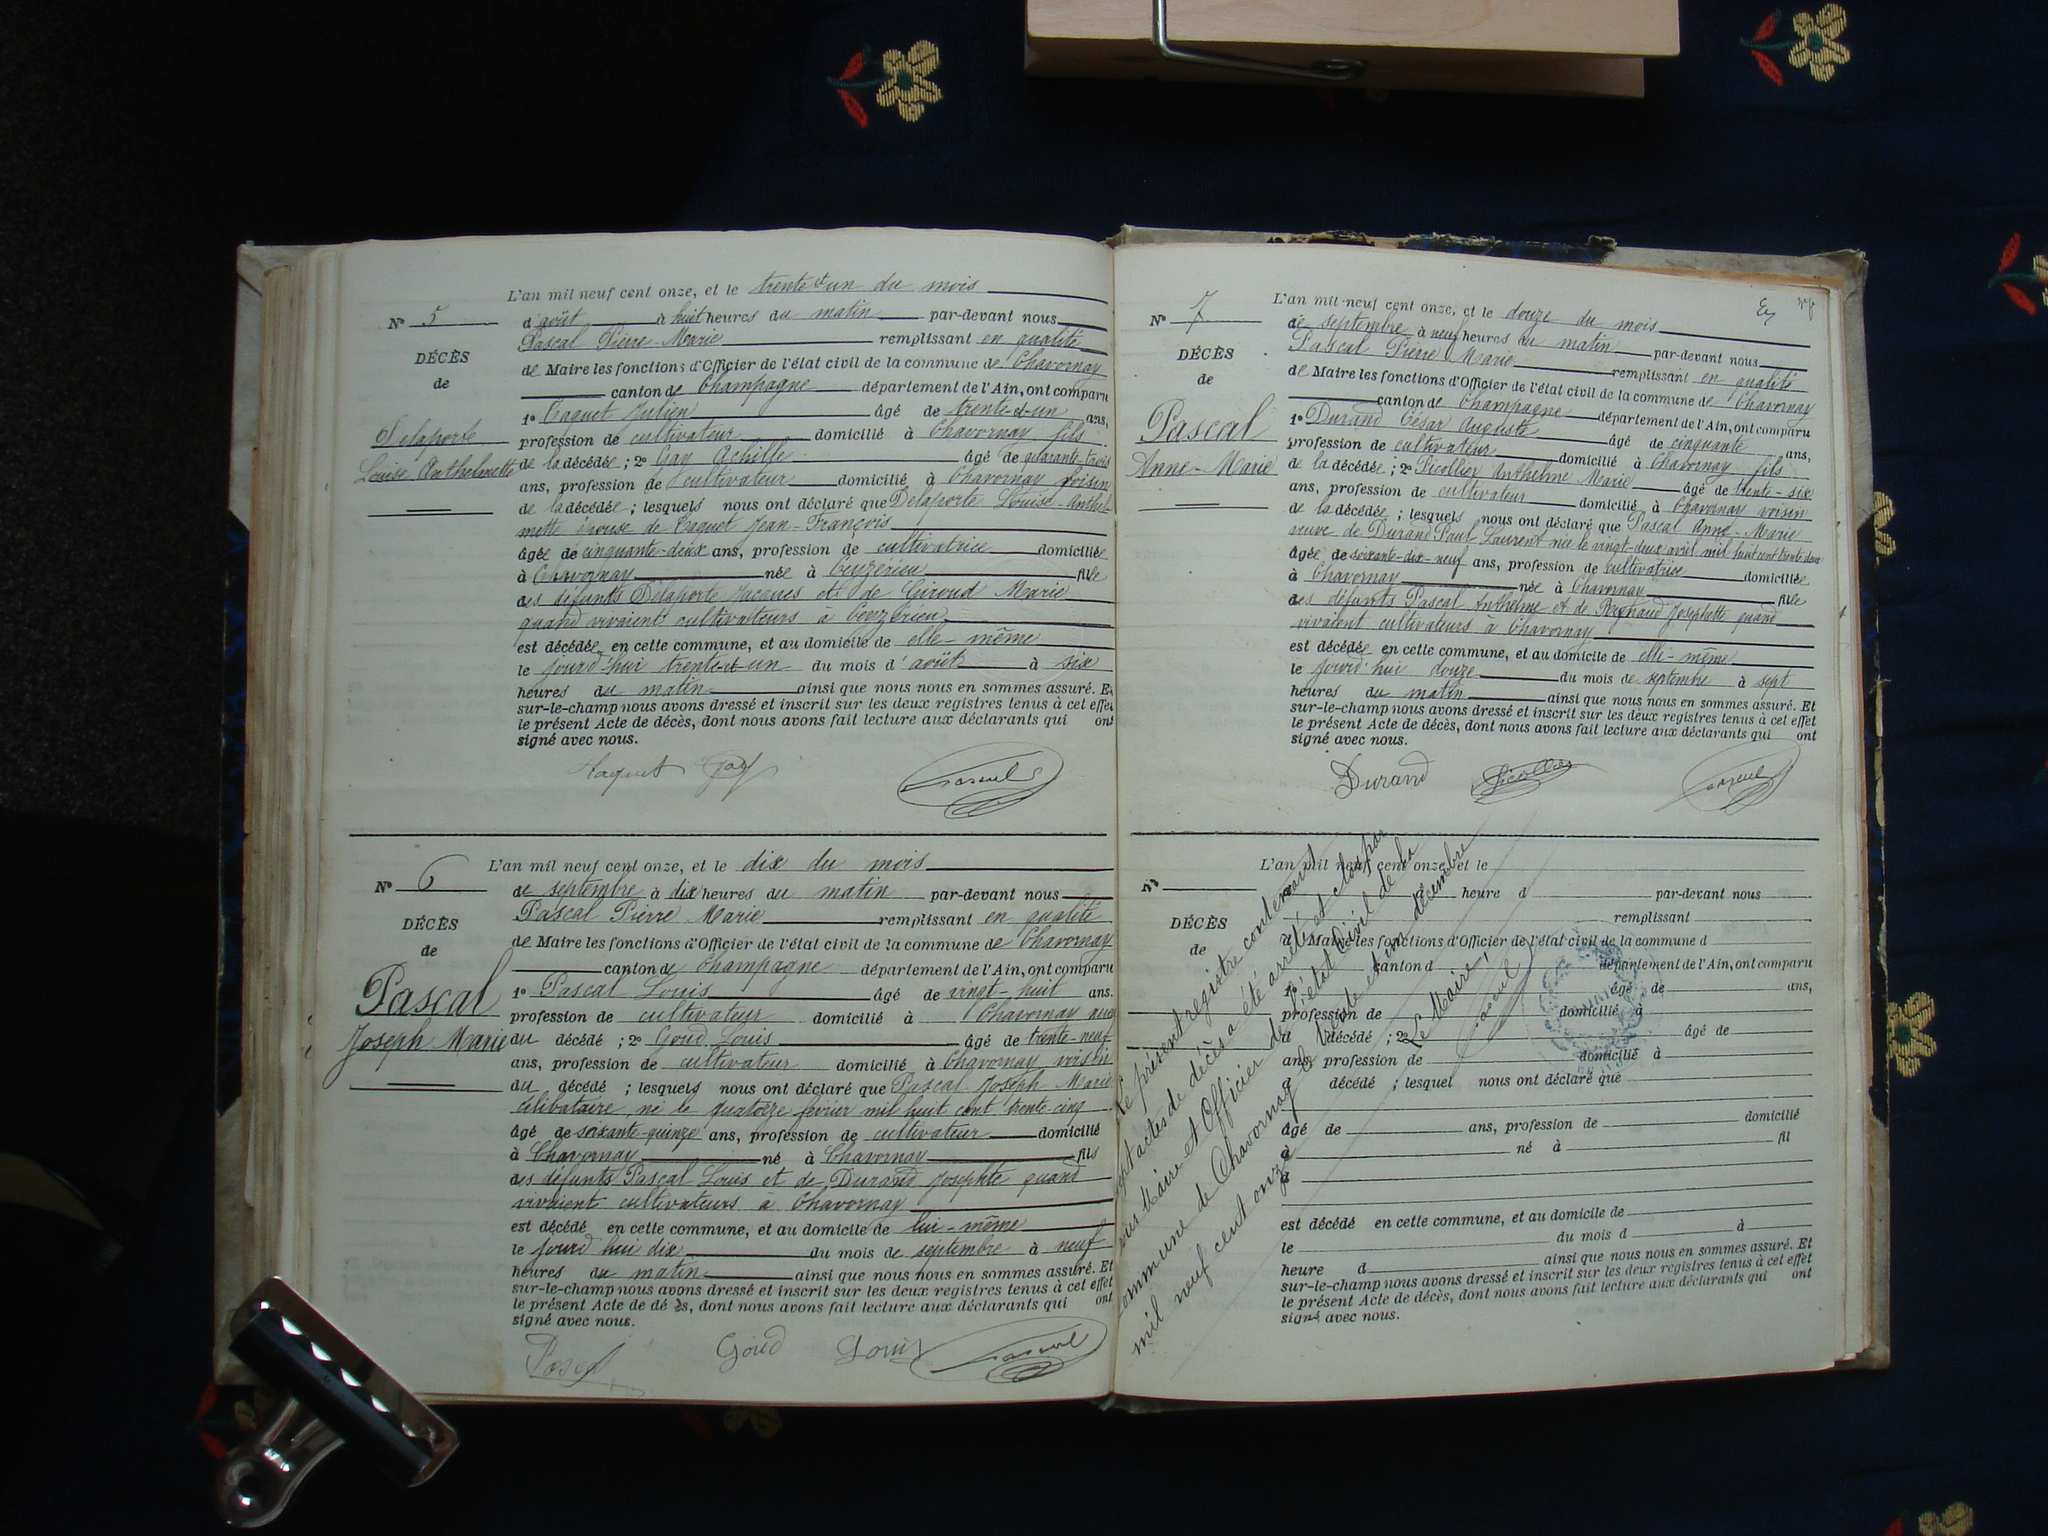 L'an mil neuf cent onze, et le trente et un du mois
N° 5
d'août à huit heures du matin par-devant nous
Pascal Pierre-Marie remplissant en qualité
DÉCÈS
de Maire les fonctions d'Officier de l'état civil de la commune de Chavornay
de
canton de Champagne département de l'Ain, ont comparu
1° Taquet Julien âgé de trente-et-un ans,
Delaporte
profession de cultivateur domicilié à Chavornay fils
Louise Anthelmette
de la décédée ; 2° Gay Achille âgé de quarante-trois
ans, profession de cultivateur domicilié à Chavornay voisin
de la décédée ; lesquels nous ont déclaré que Delaporte Louise-Anthel-
mette épouse de Taquet Jean-François
âgée de cinquante-deux ans, profession de cultivatrice domiciliée
à Chavornay née à Ceyzérieu fille
des défunts Delaporte Jacques et de Giroud Marie
quand vivaient cultivateurs à Ceyzérieu
est décédée en cette commune, et au domicile de elle-même
le jourd'hui trente-et-un du mois d'août à six
heures du matin ainsi que nous nous en sommes assuré. Et
sur-le-champ nous avons dressé et inscrit sur les deux registres tenus à cet effet
le présent Acte de décès, dont nous avons fait lecture aux déclarants qui ont
signé avec nous.
Taquet Gay Pascal
L'an mil neuf cent onze, et le dix du mois
N° 6
de septembre à dix heures du matin par-devant nous
Pascal Pierre-Marie remplissant en qualité
DÉCÈS
de Maire les fonctions d'Officier de l'état civil de la commune de Chavornay
de
canton de Champagne département de l'Ain, ont comparu
Pascal
1° Pascal Louis âgé de vingt-huit ans.
profession de cultivateur domicilié à Chavornay
Joseph Marie
du décédé ; 2° Goud Louis âgé de trente-neuf
ans, profession de cultivateur domicilié à Chavornay voisin
du décédé ; lesquels nous ont déclaré que Pascal Joseph Marie
célibataire, né le quatorze février mil huit cent trente-cinq
âgé de soixante-quinze ans, profession de cultivateur domicilié
à Chavornay né à Chavornay fils
des défunts Pascal Louis et de Durand Josephte quand
vivaient cultivateurs à Chavornay
est décédé en cette commune, et au domicile de lui-même
le jourd'hui dix du mois de septembre à neuf
heures du matin ainsi que nous nous en sommes assuré. Et
sur-le-champ nous avons dressé et inscrit sur les deux registres tenus à cet effet
le présent Acte de décès, dont nous avons fait lecture aux déclarants qui ont
signé avec nous.
Pascal Goud Louis Pascal
L'an mil neuf cent onze, et le douze du mois
N° 7
de septembre à neuf heures du matin par-devant nous
Pascal Pierre Marie remplissant en qualité
DÉCÈS
de Maire les fonctions d'Officier de l'état civil de la commune de Chavornay
de
canton de Champagne département de l'Ain, ont comparu
Pascal
1° Durand César Auguste âgé de cinquante ans,
profession de cultivateur domicilié à Chavornay fils
Anne-Marie
de la décédée ; 2° Picollier Anthelme Marie âgé de trente-six
ans, profession de cultivateur domicilié à Chavornay voisin
de la décédée ; lesquels nous ont déclaré que Pascal Anne-Marie
veuve de Durand Paul Laurent née le vingt-deux avril mil huit cent trente deux
âgée de soixante-dix-neuf ans, profession de cultivatrice domiciliée
à Chavornay née à Chavornay fille
des défunts Pascal Anthelme et de Reynaud Josephte quand
vivaient cultivateurs à Chavornay
est décédée en cette commune, et au domicile de elle-même
le jourd'hui douze du mois de septembre à sept
heures du matin ainsi que nous nous en sommes assuré. Et
sur-le-champ nous avons dressé et inscrit sur les deux registres tenus à cet effet
le présent Acte de décès, dont nous avons fait lecture aux déclarants qui ont
signé avec nous.
Durand Picollier Pascal
L'an mil neuf cent onze, et le
N°
heure d par-devant nous
remplissant
DÉCÈS
d Maire les fonctions d'Officier de l'état civil de la commune d
de
canton d département de l'Ain, ont comparu
1° âgé de ans,
profession de domicilié à
d décédé ; 2° âgé de
ans, profession de domicilié à
d décédé ; lesquel nous ont déclaré que
âgé de ans, profession de domicilié
à né à fil
d
est décédé en cette commune, et au domicile de
le du mois d à
heure d ainsi que nous nous en sommes assuré. Et
sur-le-champ nous avons dressé et inscrit sur les deux registres tenus à cet effet
le présent Acte de décès, dont nous avons fait lecture aux déclarants qui ont
signé avec nous.
Le présent registre contenant
sept actes de décès a été arrêté et clos par
nous Maire et Officier de l'état Civil de la
commune de Chavornay le trente et un décembre
mil neuf cent onze
Le Maire,
Pascal